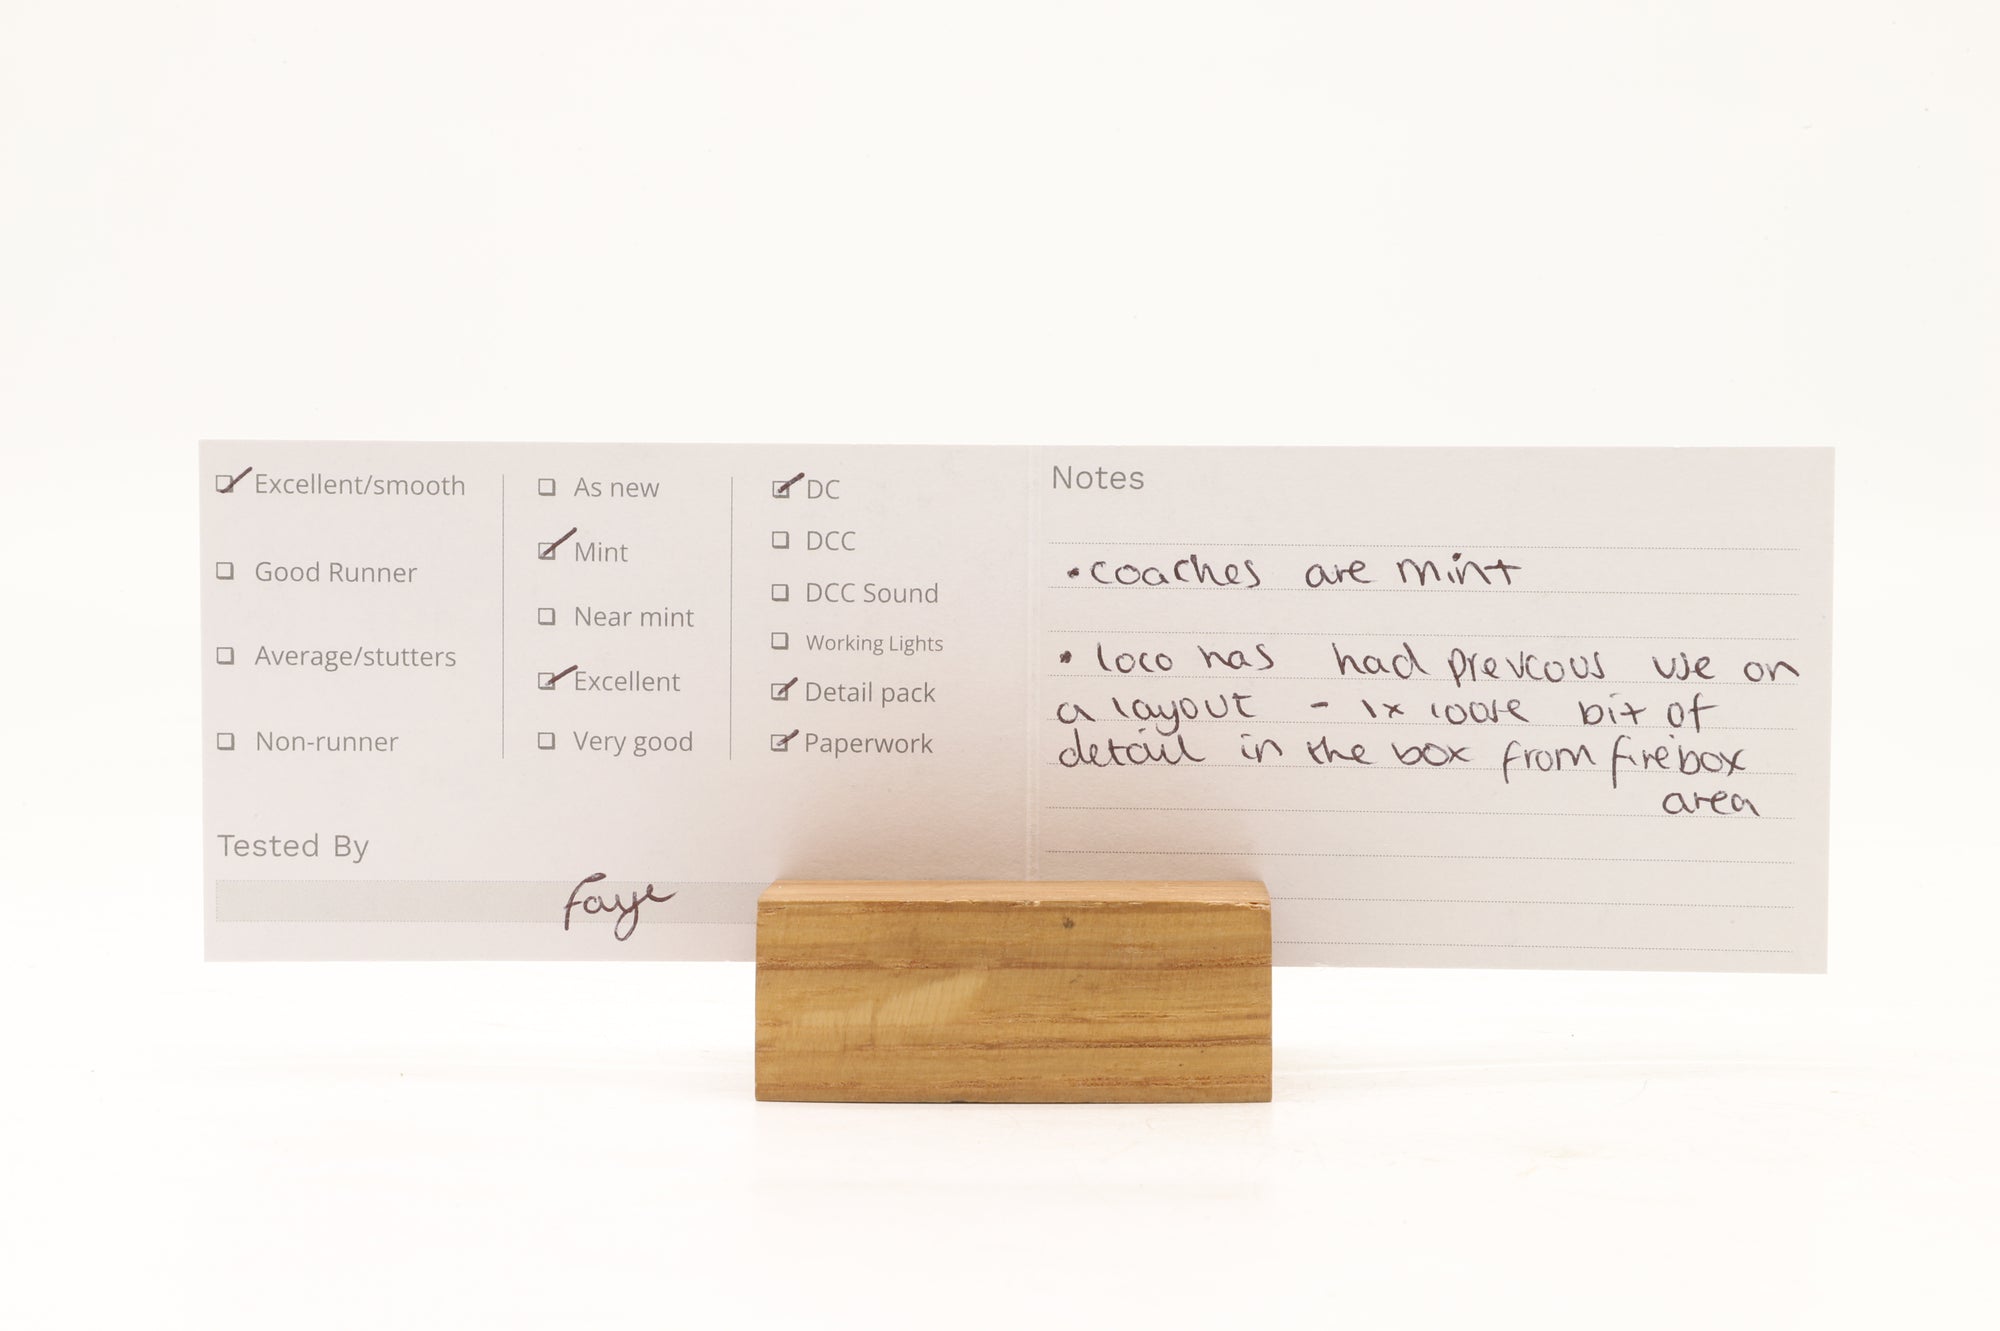 Excellent/smooth
Good Runner
Average/stutters
Non-runner
As new
Mint
Near mint
Excellent
Very good
DC
DCC
DCC Sound
Working Lights
Detail pack
Paperwork
Tested By
Faye
Notes
• coaches are mint
• loco has had previous use on
a layout - 1x loose bit of
detail in the box from firebox
area